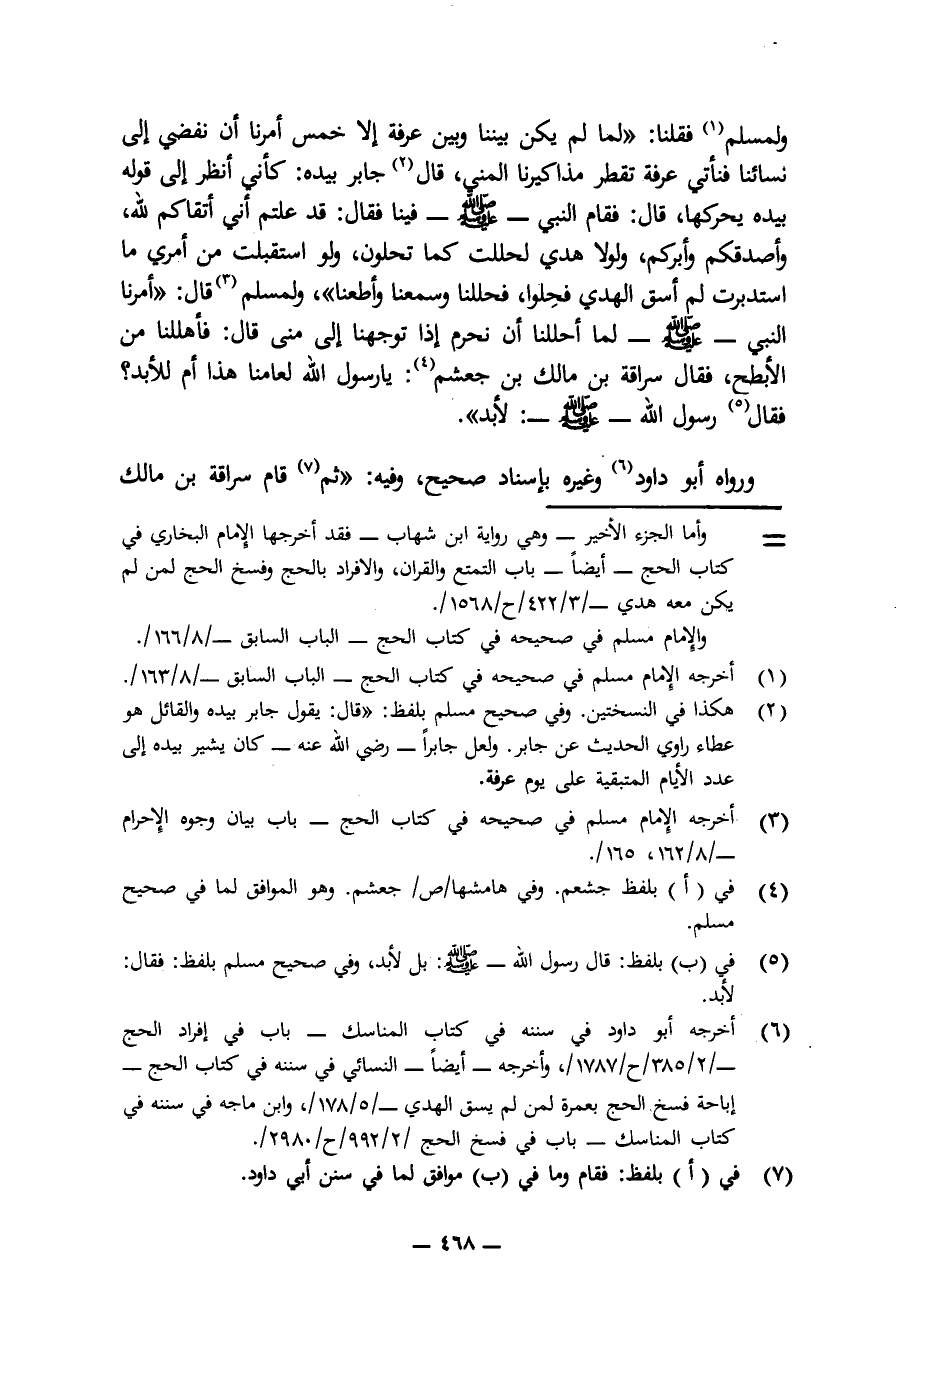 ولمسلم(١) فقلنا: «لما لم يكن بيننا وبين عرفة إلا خمس أمرنا أن نفضي إلى
نسائنا فنأتي عرفة تقطر مذاكيرنا المني، قال(٢) جابر بيده: كأني أنظر إلى قوله
بيده يحركها، قال: فقام النبي — ﷺ — فينا فقال: قد علتم أني أتقاكم لله،
وأصدقكم وأبركم، ولولا هدي لحللت كما تحلون، ولو استقبلت من أمري ما
استدبرت لم أسق الهدي فحِلوا، فحللنا وسمعنا وأطعنا»، ولمسلم(٣) قال: «أمرنا
النبي — ﷺ — لما أحللنا أن نحرم إذا توجهنا إلى منى قال: فأهللنا من
الأبطح، فقال سراقة بن مالك بن جعشم(٤): يارسول الله لعامنا هذا أم للأبد؟
فقال(٥) رسول الله — ﷺ —: لأبد».
ورواه أبو داود(٦) وغيره بإسناد صحيح، وفيه: «ثم(٧) قام سراقة بن مالك
= وأما الجزء الأخير — وهي رواية ابن شهاب — فقد أخرجها الإمام البخاري في
كتاب الحج — أيضاً — باب التمتع والقران، والافراد بالحج وفسخ الحج لمن لم
يكن معه هدي —/٤٢٢/٣/ح/١٥٦٨/.
والإمام مسلم في صحيحه في كتاب الحج — الباب السابق —/١٦٦/٨/.
(١) أخرجه الإمام مسلم في صحيحه في كتاب الحج — الباب السابق —/١٦٣/٨/.
(٢) هكذا في النسختين. وفي صحيح مسلم بلفظ: «قال: يقول جابر بيده والقائل هو
عطاء راوي الحديث عن جابر. ولعل جابراً — رضي الله عنه — كان يشير بيده إلى
عدد الأيام المتبقية على يوم عرفة.
(٣) أخرجه الإمام مسلم في صحيحه في كتاب الحج — باب بيان وجوه الإحرام
—/١٦٢/٨، ١٦٥/.
(٤) في (أ) بلفظ جشعم. وفي هامشها/ص/ جعشم. وهو الموافق لما في صحيح
مسلم.
(٥) في (ب) بلفظ: قال رسول الله — ﷺ: بل لأبد، وفي صحيح مسلم بلفظ: فقال:
لأبد.
(٦) أخرجه أبو داود في سننه في كتاب المناسك — باب في إفراد الحج
—/٣٨٥/٢/ح/١٧٨٧/، وأخرجه — أيضاً — النسائي في سننه في كتاب الحج —
إباحة فسخ الحج بعمرة لمن لم يسق الهدي —/١٧٨/٥/، وابن ماجه في سننه في
كتاب المناسك — باب في فسخ الحج /٩٩٢/٢/ح/٢٩٨٠/.
(٧) في (أ) بلفظ: فقام وما في (ب) موافق لما في سنن أبي داود.
— ٤٦٨ —